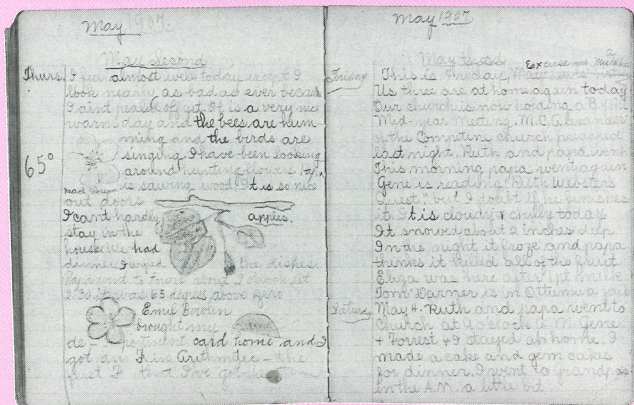 May 1907.
May Second
Thurs. I feel almost well today except I
look nearly as bad as ever becaus
I aint pealed off yet. It is a very nice
warm day and the bees are hum
ming and the birds are
65°
singing. I have been looking
around hunting flowers
is sawing wood. It is so nice
out doors
I cant hardly
apples.
stay in the
house. We had
dinner. I wiped the dishes
Papa went to town about 2 oclock. At
2:30 it was 65 degrees above zero
Emil
brought me
card home and I
got an A in Arithmetic the
first
May 1907
May third
Excuse me
Friday
This is Friday
Us three are at home again today
Our church is now holding a B.Y.P.U.
Mid-year Meeting. M.C.A.
of the church preached
last night. Ruth and papa went
This morning papa went again
Gene is reading Ruth Webster's
Quest; but I doubt if he finishes
it. It is cloudy & chilly today
It snowed about 2 inches deep.
In the night it froze and papa
thinks it killed all of the fruit
was here after 1 pt milk
Tom is in Ottumwa jail
Satur
May 4. Ruth and papa went to
Church at 9 oclock A.M. Gene
& Forrest & I stayed at home. I
made a cake and gem cakes
for dinner. I went to Grandpas
in the A.M. a little bit